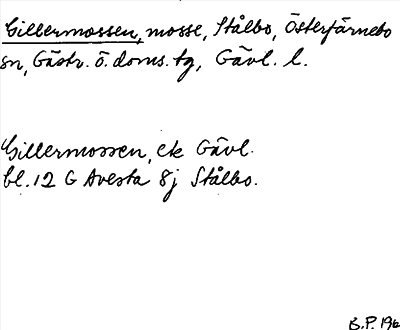 Gillermossen, mosse, Stålbo, Österfärnebo
sn, Gästr. ö. doms. tg, Gävl. l.
Gillermossen, ek Gävl.
bl. 12 G Avesta 8j Stålbo.
B.P. 196